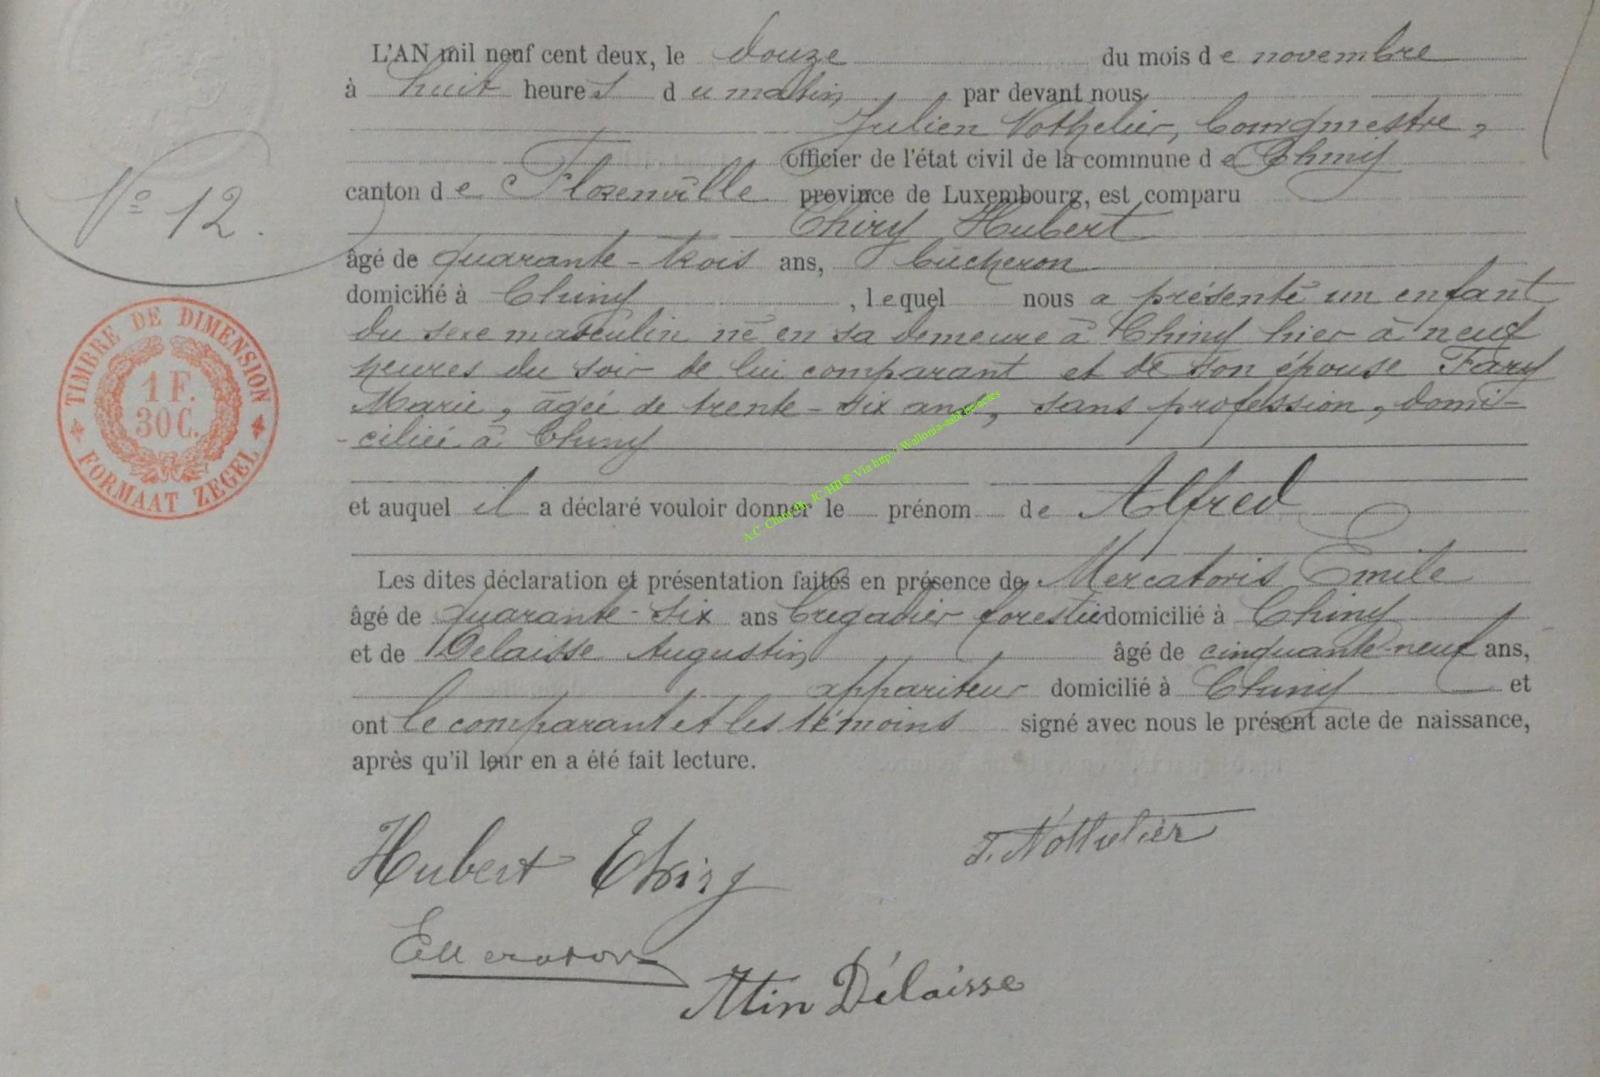 L'AN mil neuf cent deux, le douze du mois de novembre
à huit heures du matin par devant nous
Julien Nothelier, bourgmestre,
officier de l'état civil de la commune de Chiny
canton de Florenville province de Luxembourg, est comparu
Thiry Hubert
âgé de quarante-trois ans, bûcheron
domicilié à Chiny, lequel nous a présenté un enfant
du sexe masculin né en sa demeure à Chiny hier à neuf
heures du soir de lui comparant et de son épouse Fary
Marie, agée de trente-six ans, sans profession, domi-
-ciliée à Chiny
et auquel il a déclaré vouloir donner le prénom de Alfred
Les dites déclaration et présentation faites en présence de Mercatoris Emile
âgé de quarante-six ans brigadier forestier domicilié à Chiny
et de Delaisse Augustin âgé de cinquante-neuf ans,
appariteur domicilié à Chiny et
ont le comparant et les témoins signé avec nous le présent acte de naissance,
après qu'il leur en a été fait lecture.
Hubert Thiry J. Nothelier
Atin Délaisse
N° 12.
TIMBRE DE DIMENSION
1 F.
30 C.
FORMAAT ZEGEL